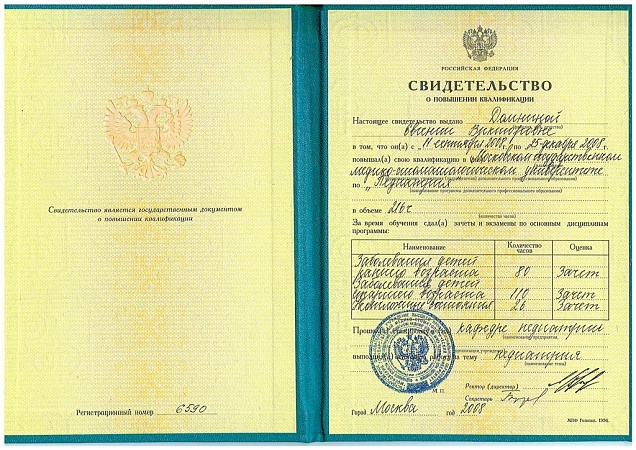 Свидетельство является государственным документом
о повышении квалификации
Регистрационный номер 6590
РОССИЙСКАЯ ФЕДЕРАЦИЯ
СВИДЕТЕЛЬСТВО
О ПОВЫШЕНИИ КВАЛИФИКАЦИИ
Настоящее свидетельство выдано Домниной
Евгении Викторовне
в том, что он(а) с „11 сентября 2008 г. по 25 декабря 2008 г.
повышал(а) свою квалификацию в Московском государственном
(наименование образовательного учреждения дополнительного профессионального образования)
медико-стоматологическом университете
по „Педиатрия"
(наименование программы дополнительного профессионального образования)
в объеме 216 ч
(количество часов)
За время обучения сдал(а) зачеты и экзамены по основным дисциплинам
программы:
Наименование Количество часов Оценка
Заболевания детей
раннего возраста 80 Зачет
Заболевания детей
старшего возраста 110 Зачет
Неотложные состояния 26 Зачет
Прошел(а) в (на) кафедре педиатрии
(наименование предприятия,
выполнил(а) работу на тему педиатрия
(наименование темы)
М. П.
Ректор (директор)
Секретарь
Город Москва год 2008
МПФ Гознак. 1996.